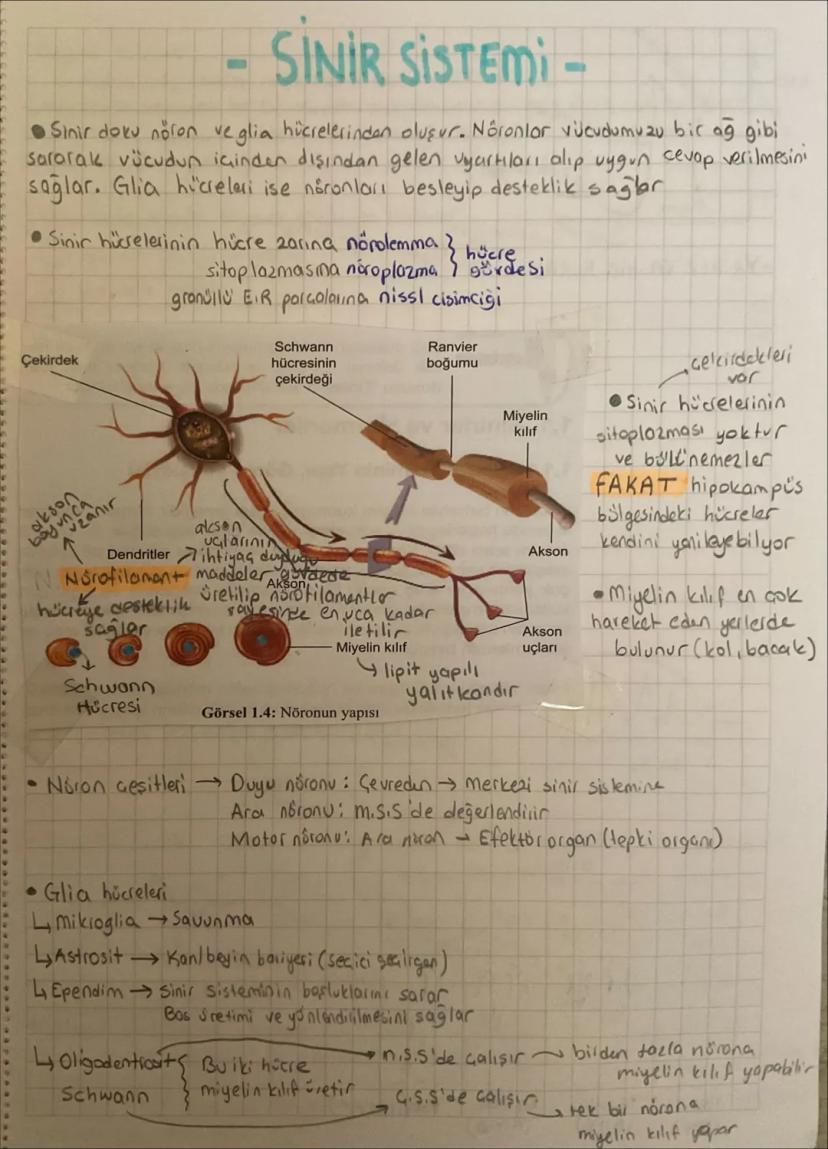 - SİNİR SİSTEMİ -
• Sinir doku nöron ve glia hücrelerinden oluşur. Nöronlar vücudumuzu bir ağ gibi
sararak vücudun içinden dışından gelen uyartıları alıp uygun cevap verilmesini
sağlar. Glia hücreleri ise nöronları besleyip desteklik sağlar
• Sinir hücrelerinin hücre zarına nörolemma } hücre
sitoplazmasına nöroplazma } gövdesi
granüllü E.R parçalarına nissl cisimciği
Çekirdek
Schwann
hücresinin
çekirdeği
Ranvier
boğumu
Miyelin
kılıf
Akson
Dendritler
akson
boyunca
uzanır
Nörofilament
hücreye desteklik
sağlar
akson
uçlarının
ihtiyaç duyduğu
maddeler gövdede
Akson
üretilip nörofilamentler
sayesinde en uca kadar
iletilir
Akson
uçları
Miyelin kılıf
↳ lipit yapılı
yalıtkandır
Schwann
Hücresi
Görsel 1.4: Nöronun yapısı
çekirdekleri
var
• Sinir hücrelerinin
sitoplazması yoktur
ve bölünemezler
FAKAT hipokampüs
bölgesindeki hücreler
kendini yenileyebiliyor
• Miyelin kılıf en çok
hareket eden yerlerde
bulunur (kol, bacak)
• Nöron çeşitleri → Duyu nöronu : Çevreden → merkezi sinir sistemine
Ara nöronu : m.S.S'de değerlendirir
Motor nöronu : Ara nöron → Efektör organ (tepki organı)
• Glia hücreleri
↳ Mikroglia → Savunma
↳ Astrosit → Kan/beyin bariyeri (seçici geçirgen)
↳ Ependim → Sinir sisteminin boşluklarını sarar
Bos üretimi ve yönlendirilmesini sağlar
↳ Oligodentrosit } Bu iki hücre → m.S.S'de çalışır → birden fazla nörona
miyelin kılıf yapabilir
Schwann } miyelin kılıf üretir → Ç.S.S'de çalışır → tek bir nörona
miyelin kılıf yapar